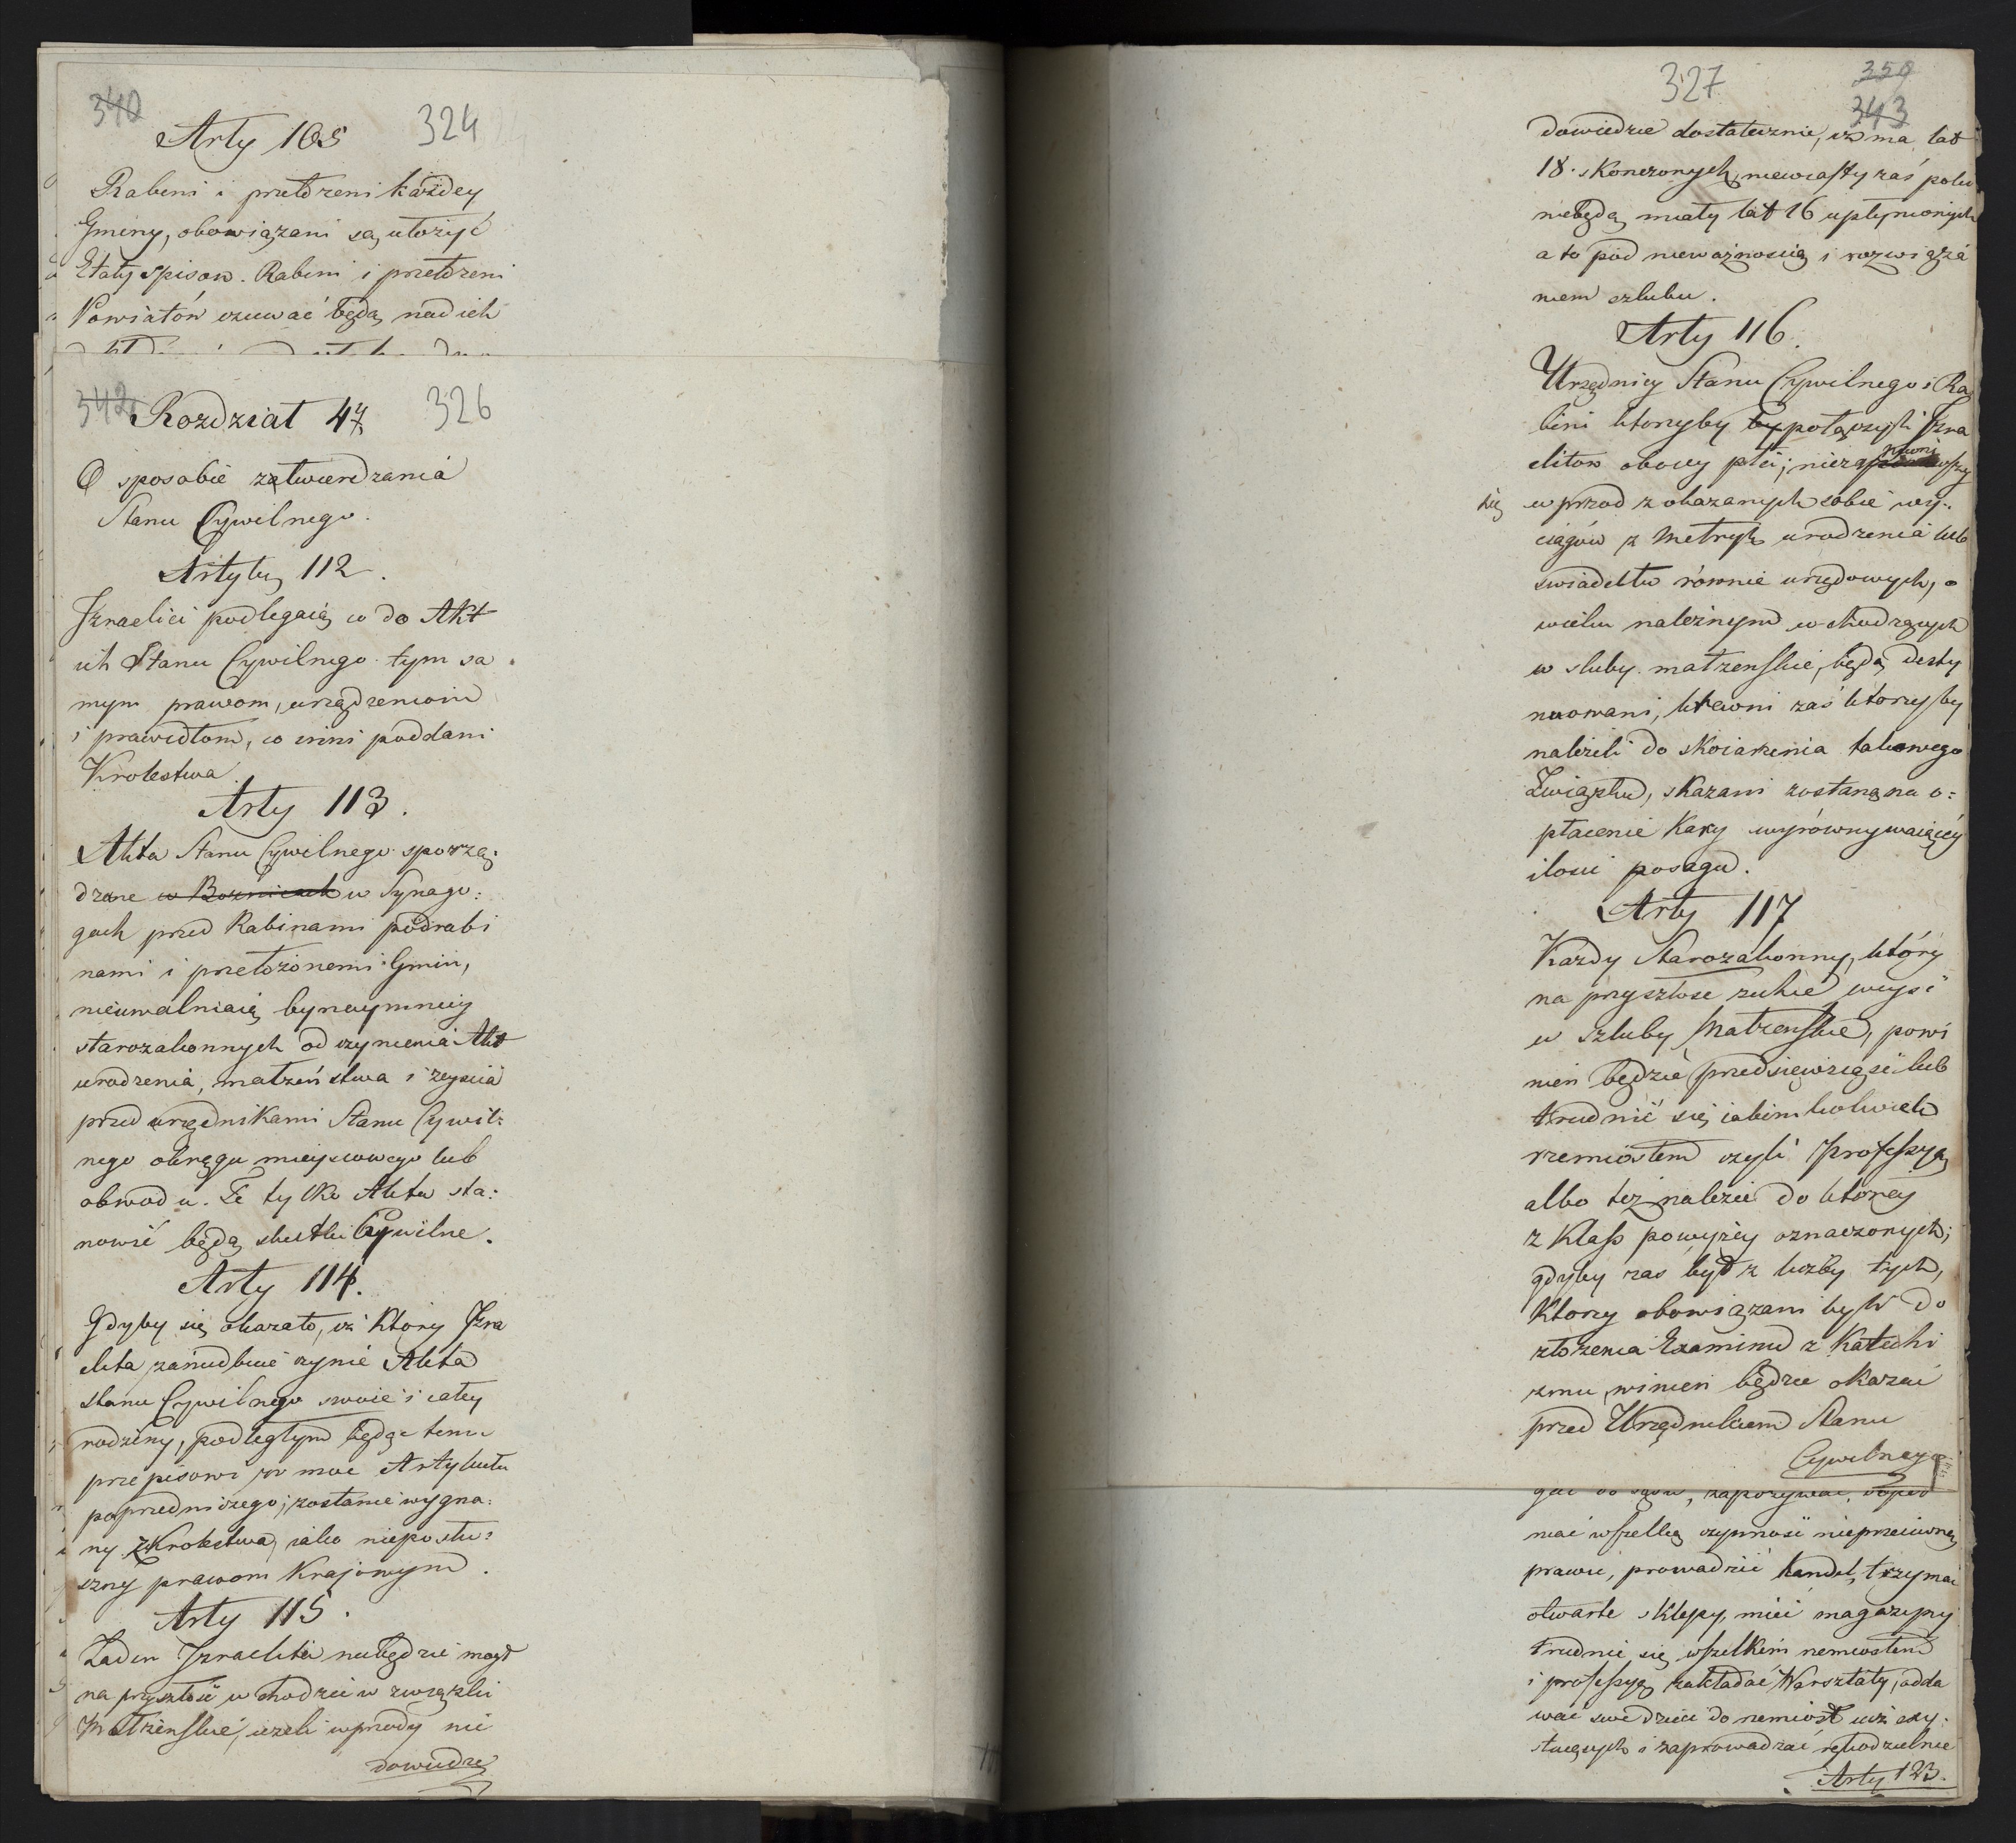 340
324
Arty 105
Rabini i przełożeni każdey
Gminy, obowiązani są ułożyć
Etaty spisow. Rabini i przełożeni
Powiatów czuwać będą nad ich
342
326
Rozdział 47.
O sposobie zatwierdzania
Stanu Cywilnego.
Artykuł 112.
Izraelici podlegaią co do Akt
ich Stanu Cywilnego tym sa
mym prawom, urządzeniom
i prawidłom, co inni poddani
Krolestwa.
Arty 113.
Akta Stanu Cywilnego sporzą:
dzane w Boznicach w Synago:
gach przed Rabinami podrabi
nami i przełożonemi Gmin,
nieuwalniaią bynaymniey
starozakonnych od czynienia Akt
urodzenia, małżeństwa i zeyscia
przed urzędnikami Stanu Cywil:
nego okręgu mieyscowego lub
obwodu. Te tylko Akta sta:
nowić będą skutki Cywilne.
Arty 114.
Gdyby się okazało, iż ktory Izra
elita zaniedbuie czynić Akta
stanu Cywilnego swoie i całey
rodziny, podległym będąc temu
przepisowi na moc Artykułu
poprzedniczego; zostanie wygna:
ny z Krolestwa, iako nieposłu:
szny prawom Krajowym.
Arty 115.
Żaden Izraelita niebędzie mogł
na przyszłość wchodzić w związki
Małżeńskie, ieżeli wprzody nie
dowiedzie
327
350
343
dowiedzie dostatecznie, iż ma lat
18. skonczonych, niewiasty zaś poki
niebędą miały lat 16 upłynionych
a to pod nieważnością i rozwiąza
niem szlubu.
Arty 116.
Urzędnicy Stanu Cywilnego i Ra
bini ktorzyby by połączyli Izra
elitow oboiey płci; niezapewniwszy
się wprzod z okazanych sobie wy:
ciągów z Metryk urodzenia lub
swiadectw rownie urzędowych, o
wieku należnym wchodzących
w sluby małżenskie, będą desty
tuowani, krewni zaś ktorzyby
należeli do skoiarzenia takowego
Związku, skazani zostaną na o:
płacenie Kary wyrównywaiącey
ilości posagu.
Arty 117
Każdy Starozakonny, ktory
na przyszłosc zechce weysć
w szluby Małżenskie, powi
nien będzie przedsięwziąść lub
trudnić się iakimkolwiek
rzemiosłem czyli Professyą
albo też należeć do ktorey
z Klass powyżey oznaczonych;
gdyby zas był z liczby tych,
Ktorzy obowiązani byli do
złożenia Examinu z Katechi
zmu, winien będzie okazać
przed Urzędnikiem Stanu
Cywilnego
niać wszelką czynność nieprzeciwną
prawu, prowadzić handel, trzymać
otwarte sklepy, mieć magazyny
trudnić się wszelkim rzemiosłem
i professyą zakładać Warsztaty, odda
wać swe dzieci do rzemiosł
i zaprowadzać rękodzielnie
Arty 123.